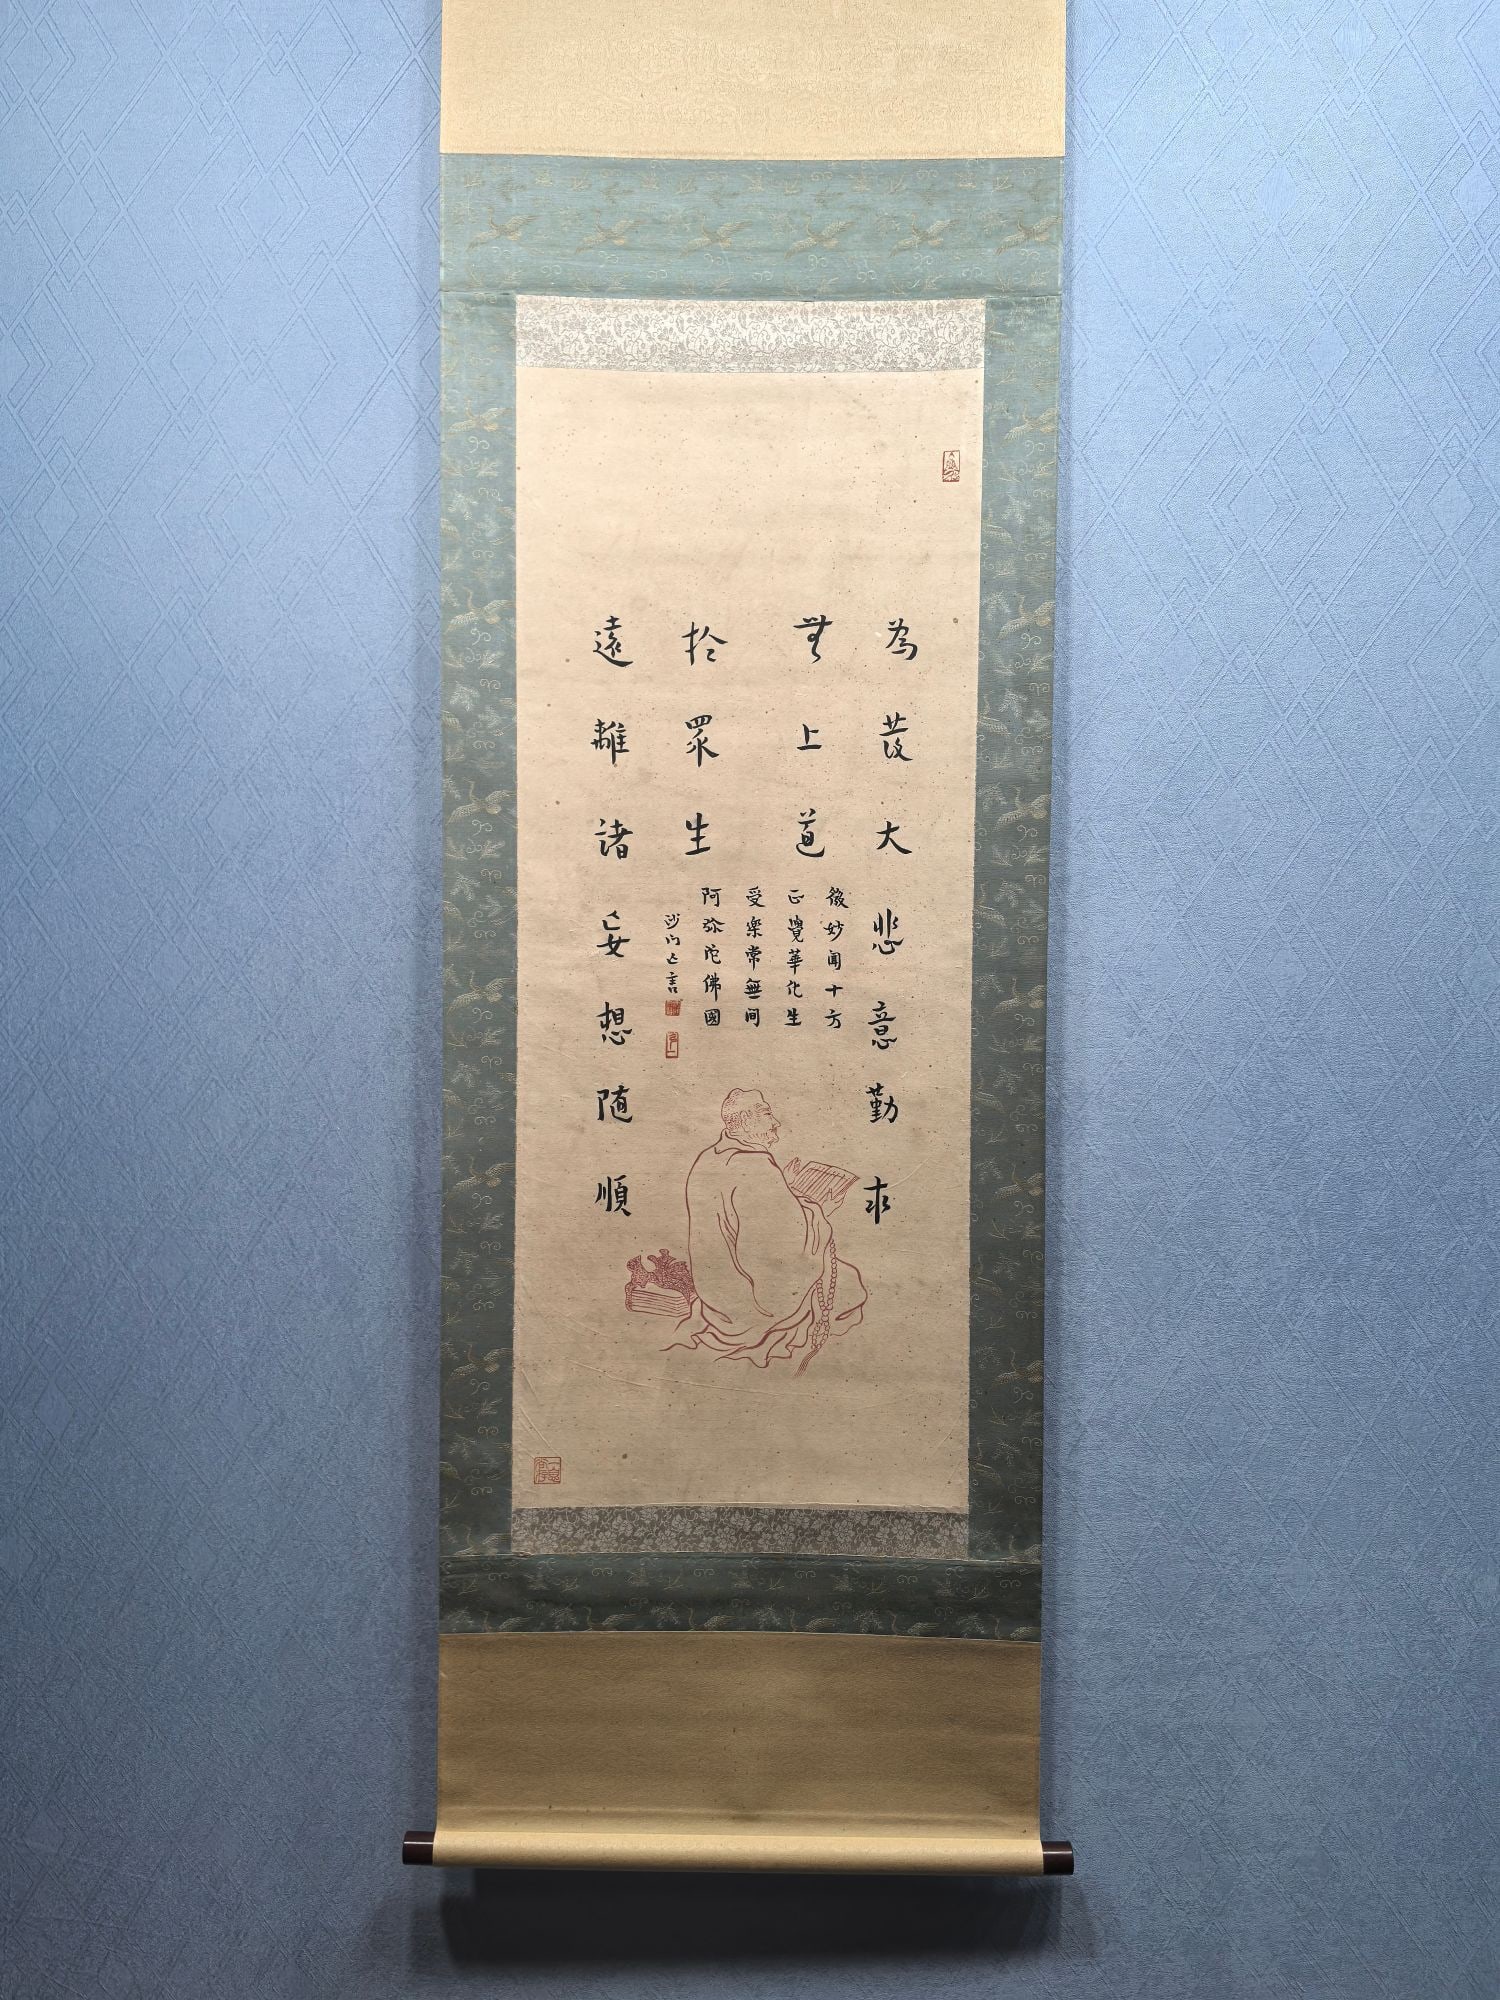 為發大悲意勤求
無上道
遠離諸妄想随順
於眾生
微妙聞十方
正覺華化生
受樂常無間
阿弥陀佛國
沙門亡言